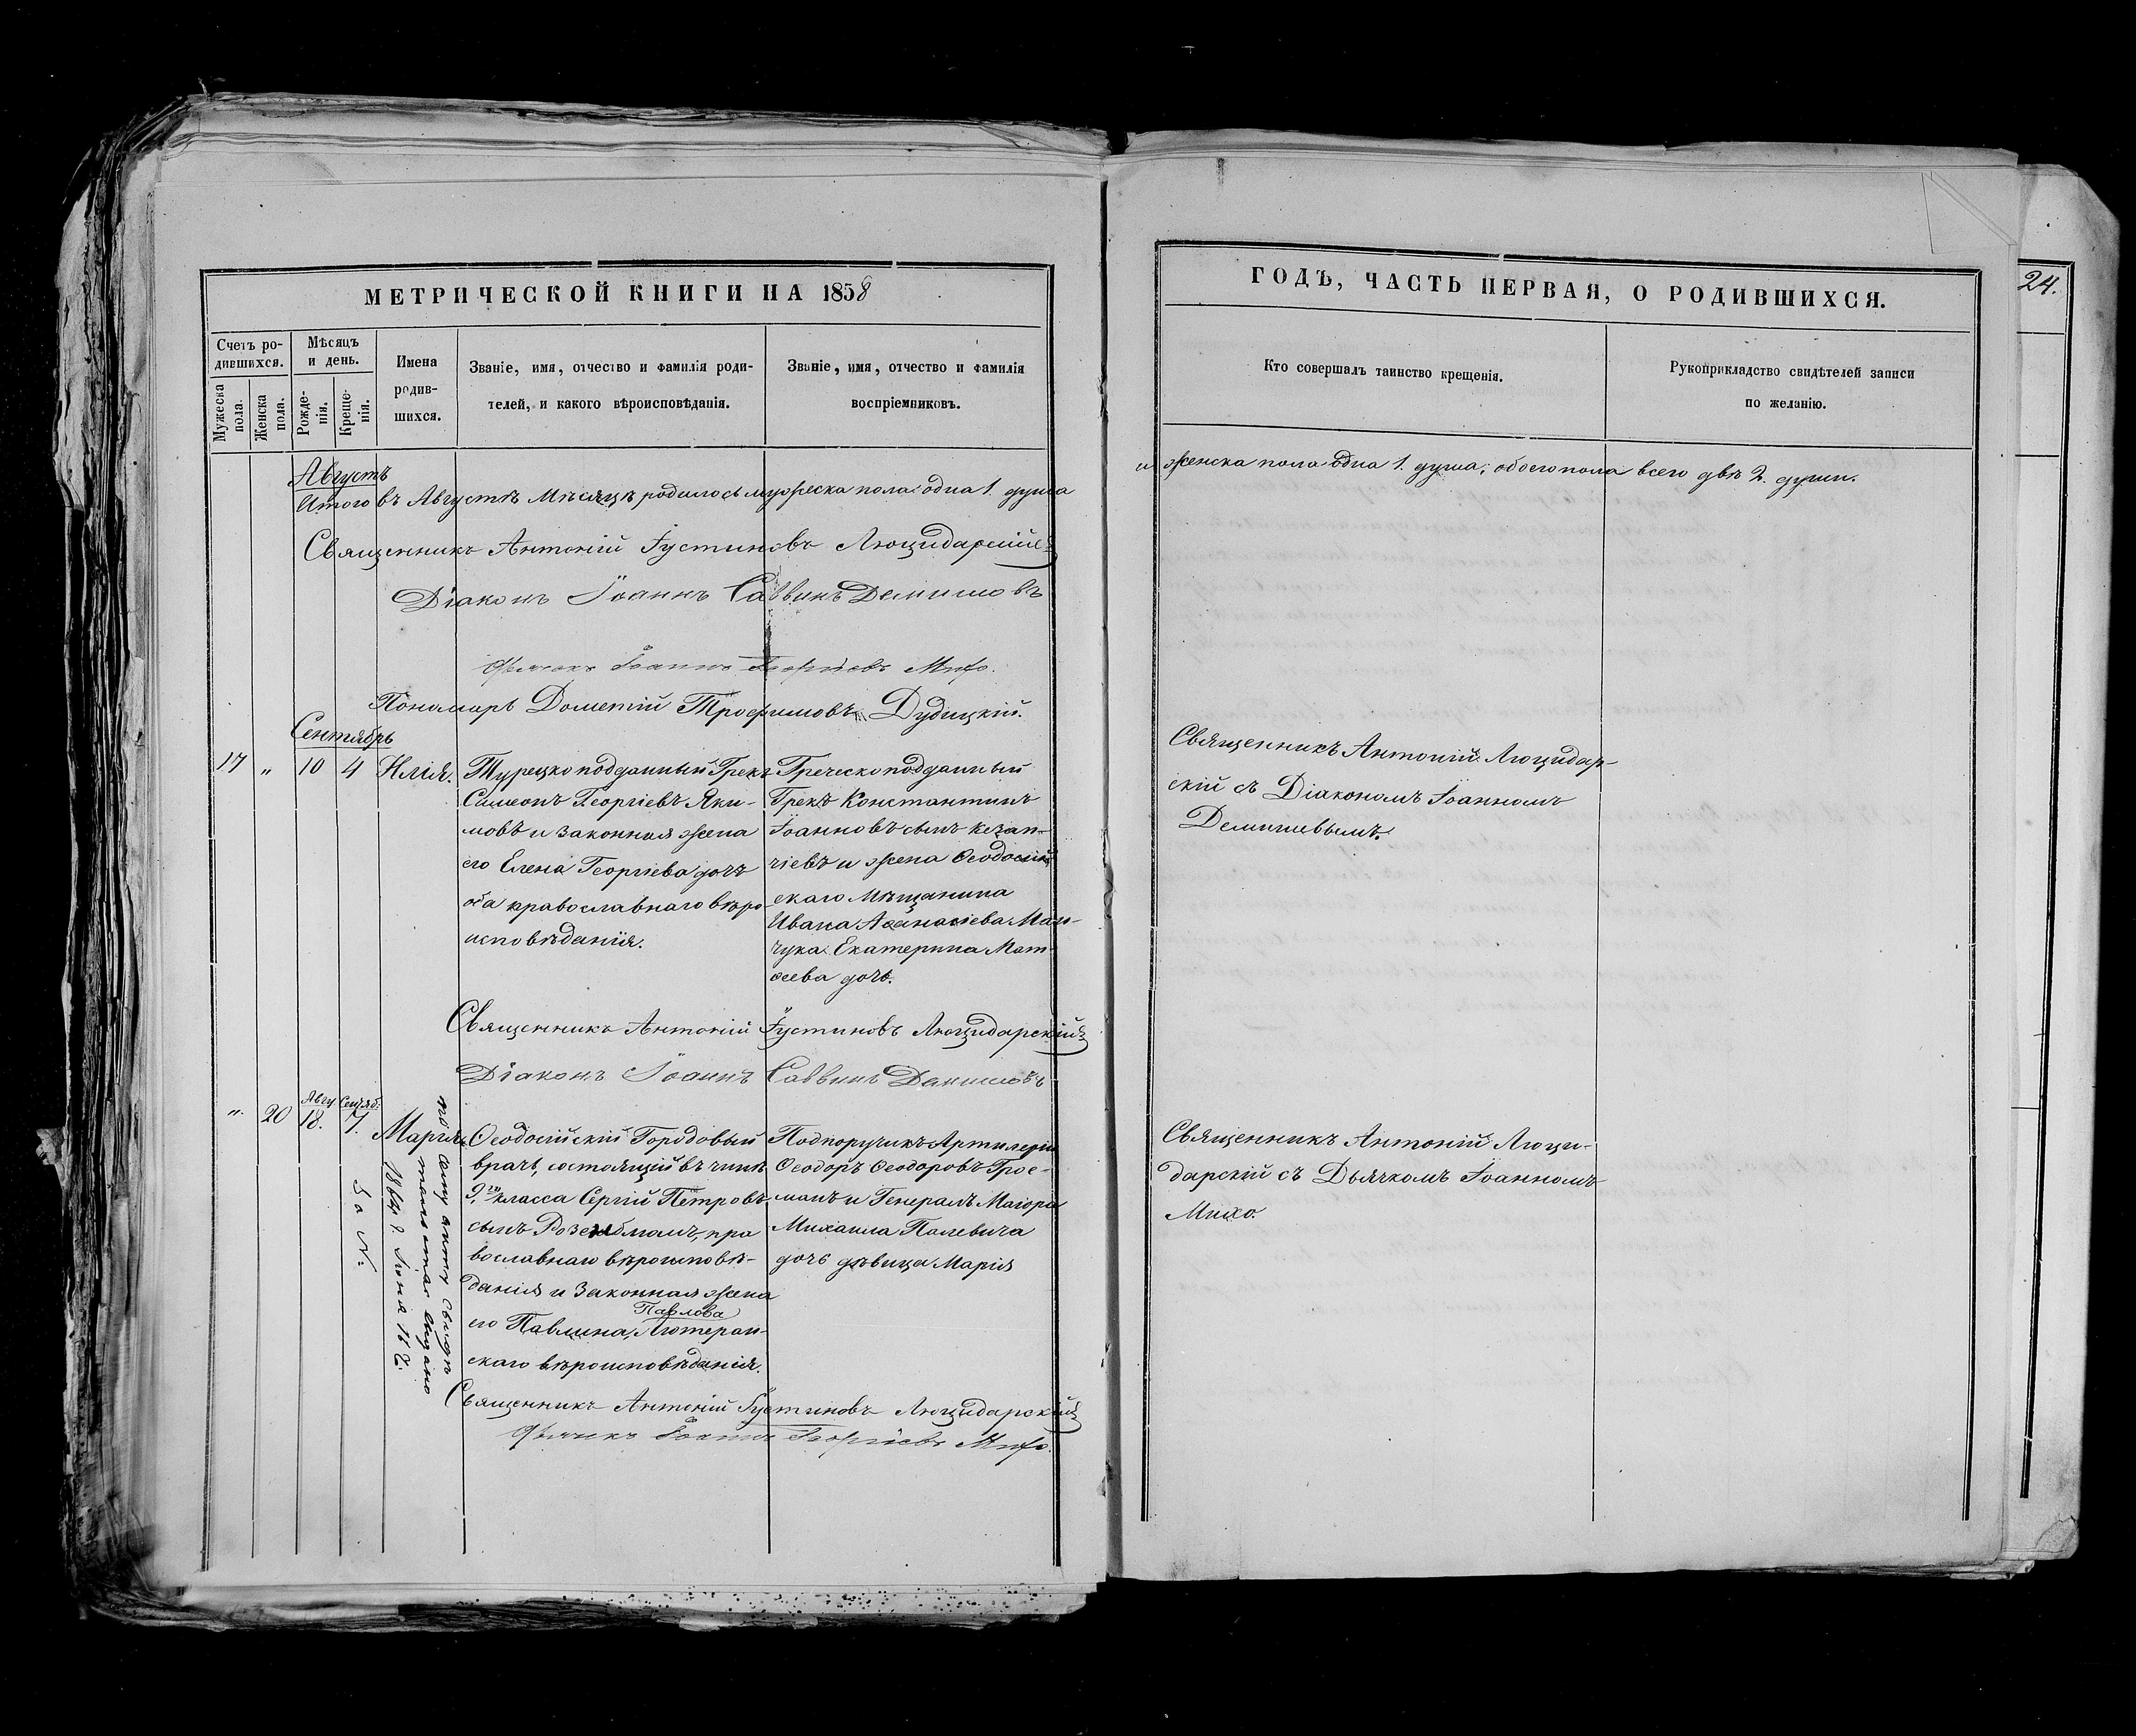 МЕТРИЧЕСКОЙ КНИГИ НА 1858
Счетъ ро-
дившихся.
Мужеска
пола.
Женска
пола.
Мѣсяцъ
и день.
Рожде-
нія.
Креще-
нія.
Имена
родив-
шихся.
Званіе, имя, отчество и фамилія роди-
телей, и какого вѣроисповѣданія.
Званіе, имя, отчество и фамилія
воспріемниковъ.
Августъ
Итого въ Августѣ Мѣсяцѣ родилось мужеска пола: одна 1. душа
Священникъ Антоній Іустиновъ Люцидарскій
Діаконъ Іоаннъ Саввинъ Демишовъ
Дьячокъ Іоаннъ Георгіевъ Михо.
Пономаръ Дометій Трофимовъ Дудицкій.
Сентябрь
17 " 10 4 Илія.
Турецкоподданный Грекъ
Симеонъ Георгіевъ Яки-
мовъ и законная жена
его Елена Георгіева дочь
оба православнаго вѣро-
исповѣданія.
Греческоподданный
Грекъ Константинъ
Іоанновъ сынъ Казан-
чіевъ и жена Ѳеодосій
скаго мѣщанина
Ивана Аѳанасіева Ман-
чука Екатерина Мат-
ѳеева дочь.
Священникъ Антоній Іустиновъ Люцидарскій
Діаконъ Іоаннъ Саввинъ Демишовъ
" 20
Авгу Сентяб:
18. 7.
Марія
Ѳеодосійскій Городовый
врачъ, состоящій въ чинѣ
9го класса Сергій Петровъ
сынъ Розенблюмъ, пра
вославнаго вѣроисповѣ-
данія и законная жена
Павлова
его Павлина, Лютеран-
скаго вѣроисповѣданія.
Подпоручикъ Артилеріи
Ѳеодоръ Ѳеодоровъ Грос-
манъ и Генералъ Маіора
Михаила Палевича
дочь дѣвица Марія
по сему акту свидѣ
тельство выдано
1864 г. Іюня 16 д.
за №
Священникъ Антоній Іустиновъ Люцидарскій
Дьячокъ Іоаннъ Георгіевъ Михо.
ГОДЪ, ЧАСТЬ ПЕРВАЯ, О РОДИВШИХСЯ.
Кто совершалъ таинство крещенія.
Рукоприкладство свидѣтелей записи
по желанію.
и женска пола одна 1. душа; обоего пола всего двѣ 2. души.
Священникъ Антоній Люцидар-
скій съ Діакономъ Іоанномъ
Демишевымъ.
Священникъ Антоній Люци-
дарскій съ Дьячкомъ Іоанномъ
Михо.
24.